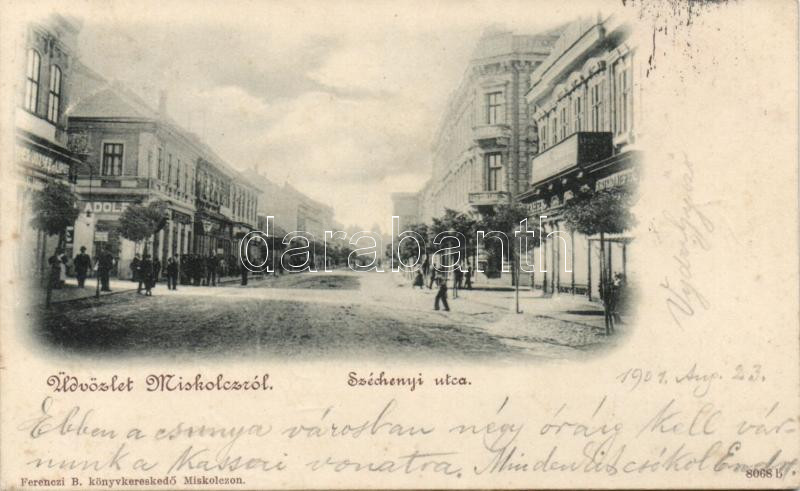 ADOLF
darabanth.com
Üdvözlet Miskolczról.
Széchenyi utca.
1901. Aug. 23.
Ebben a csunya városban négy óráig kell vár-
nunk a kassai vonatra. Mindenkit csókol Endre
Ferenczi B. könyvkereskedő Miskolczon.
8068 b